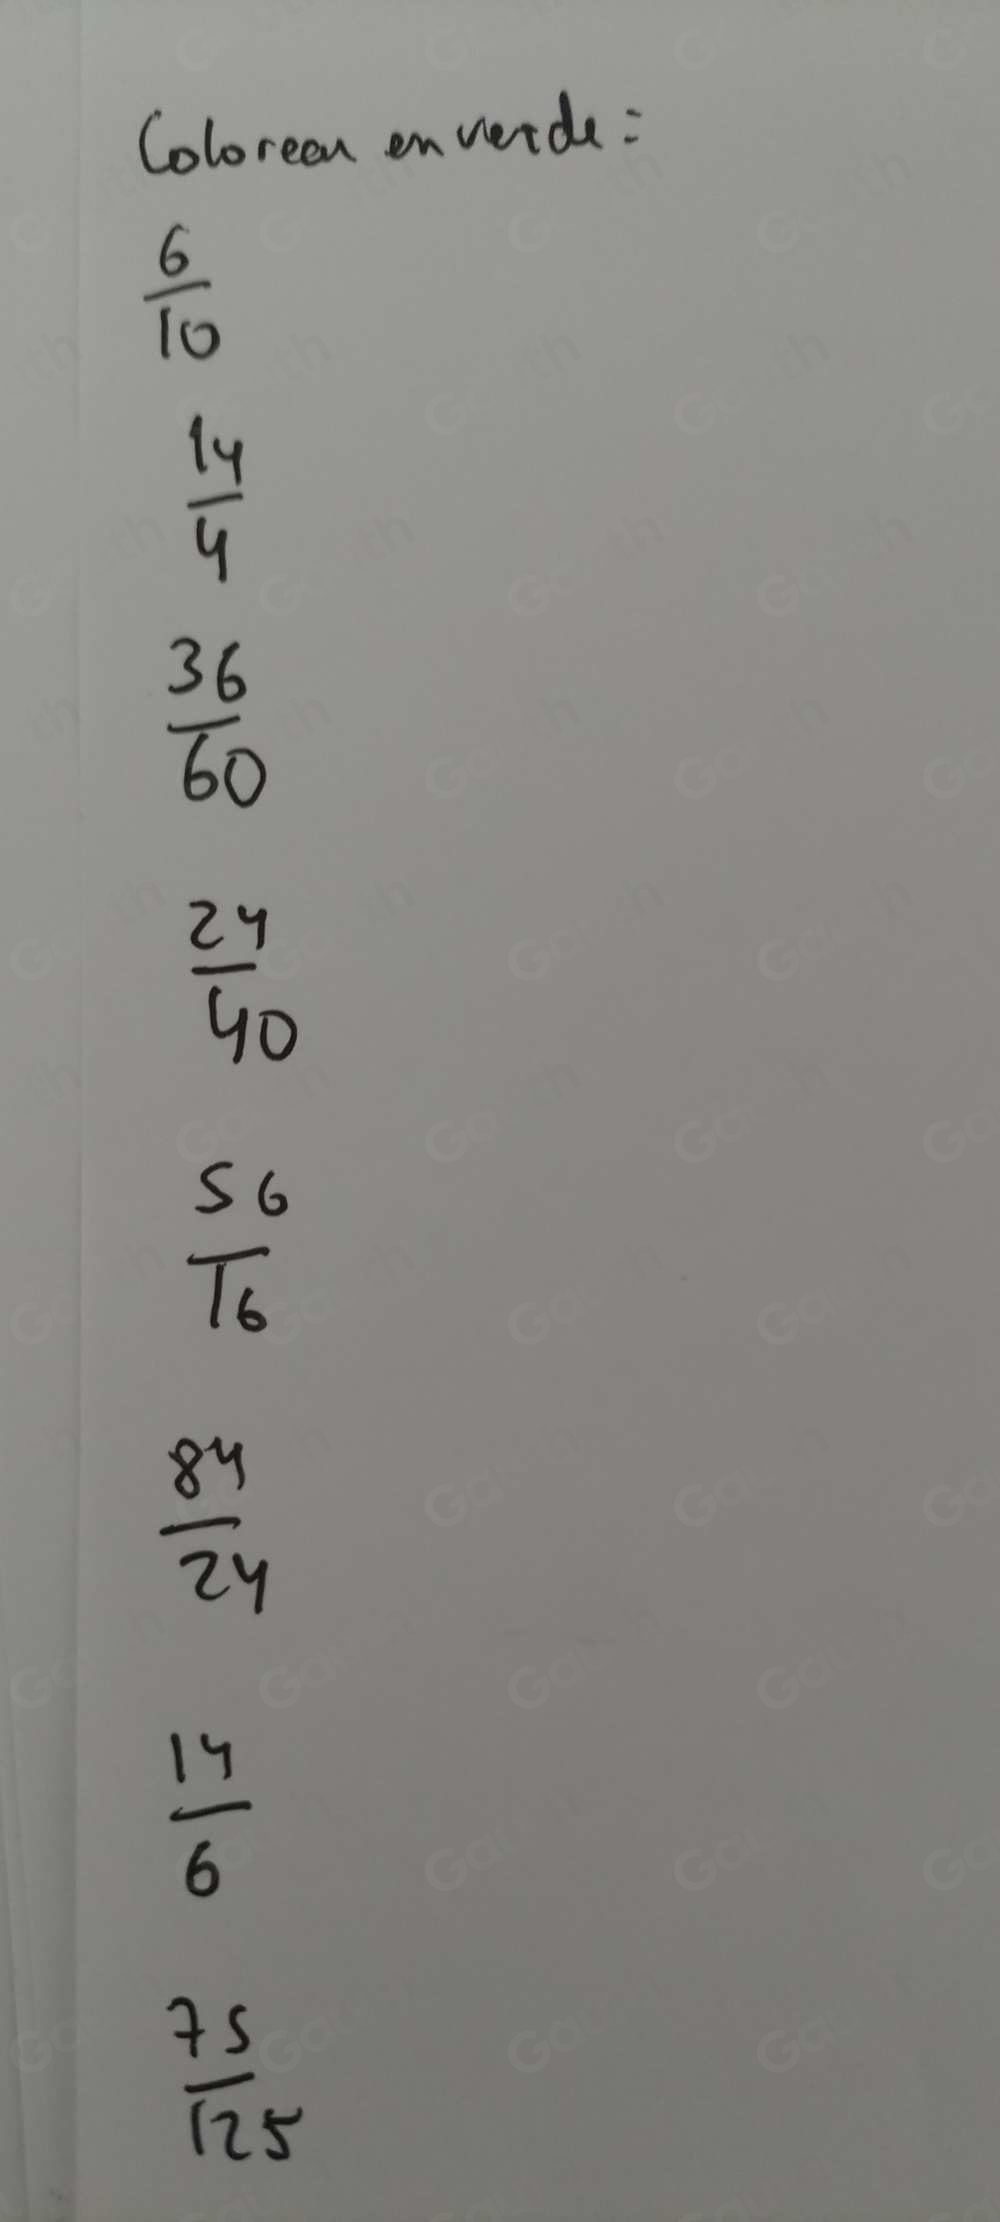 Colorean en verde:
6
10
14
4
36
60
24
40
56
16
84
24
14
6
75
125